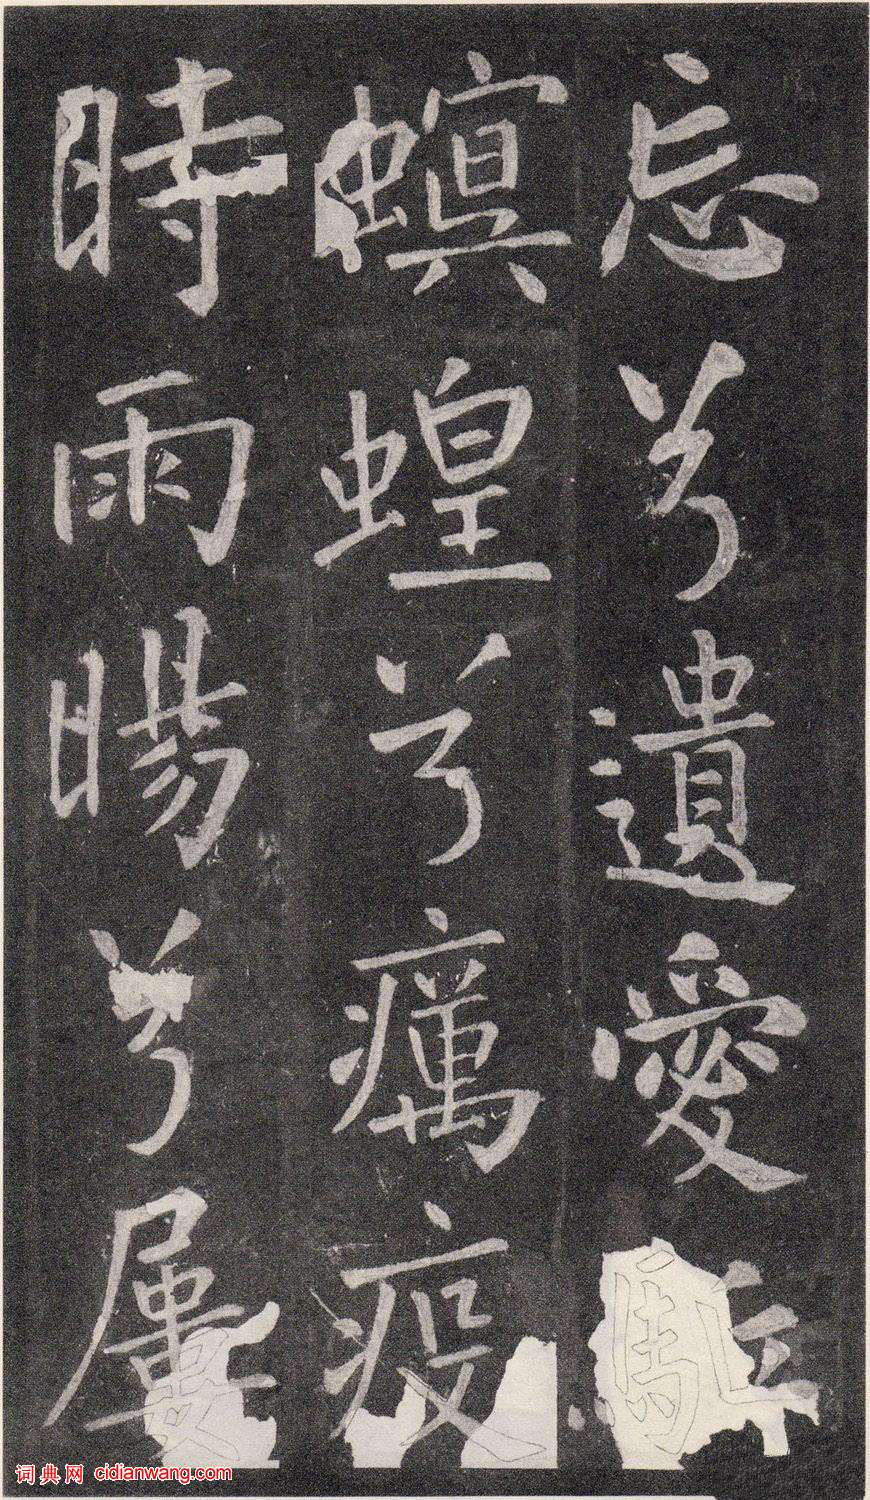 忘兮遺愛驅
螟蝗兮癘疫
時雨暘兮屢
词典网 cidianwang.com